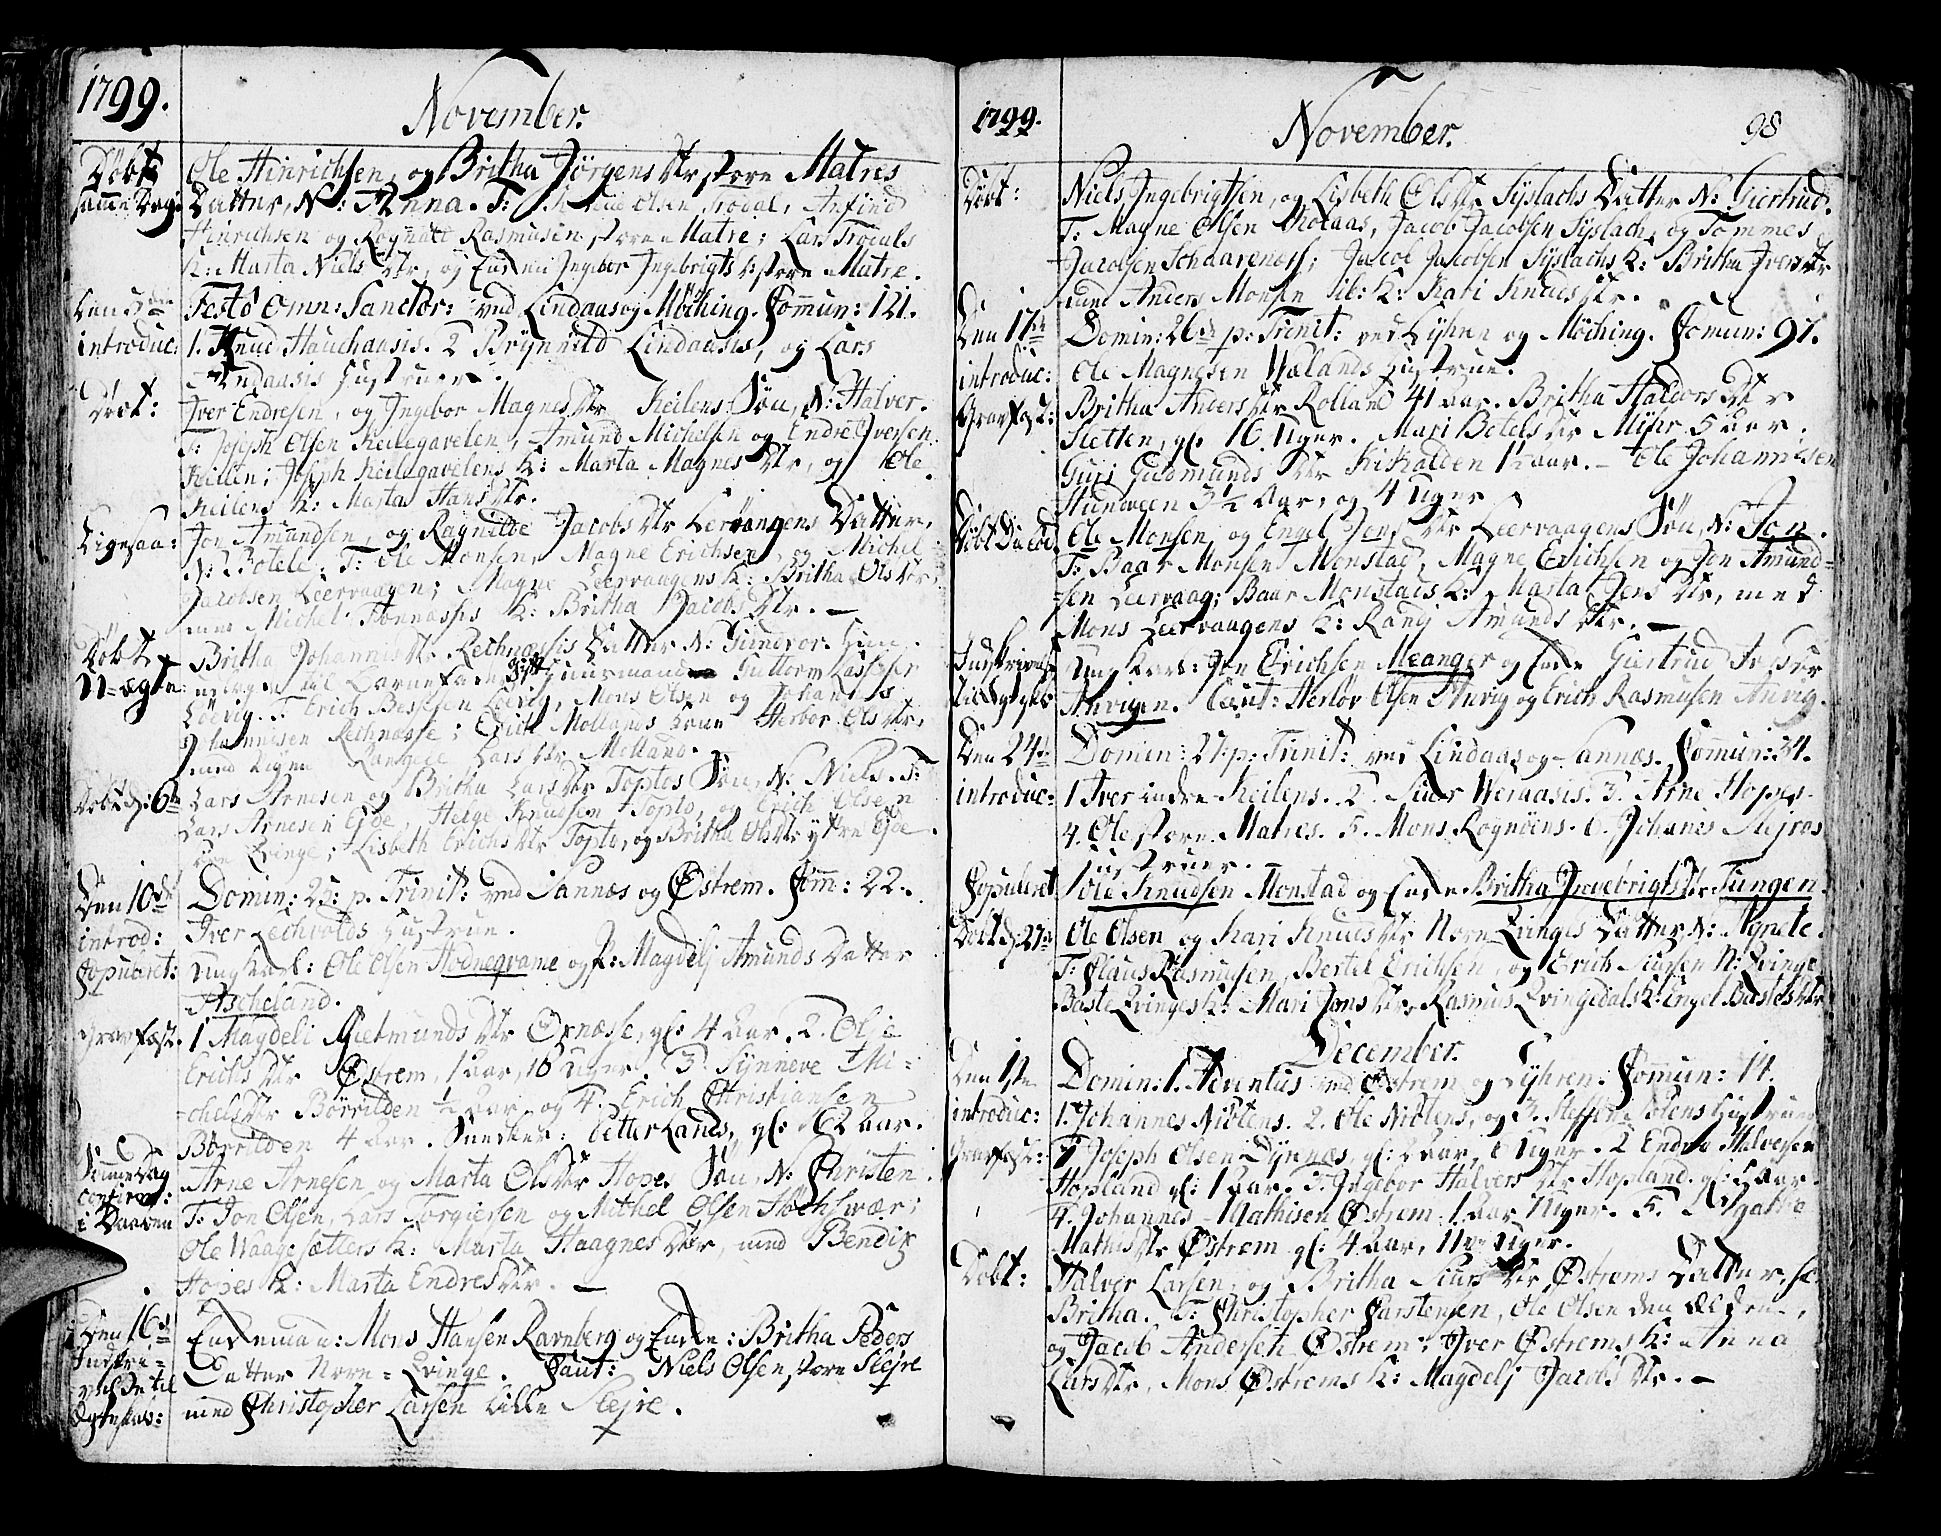 1799.
November.
Döbt Ole Hinrichsen, og Britha Jörgens Dtr store Matres
samme Dag: Datter, N: Anna. T: Knud Olsen Trodal, Anfind
Hinrichsen og Rasmusen store Matre; Lars Trodals
K: Marta Niels Dtr, og Enken Ingebor Ingebrigts Dtr store Matre.
Den 3de Festo Omn: Sanctor: ved Lindaas og Möching. Comun: 121.
introduc: 1. Knud Hauchaasis. 2 Brynild Lindaasis, og Lars
Lindaasis Hustruer.
Döbt: Iver Endresen, og Ingebor Magnes Dtr Keilens Sön, N: Halver.
T: Joseph Olsen Keilegavelen, Amund Michelsen og Endre Iversen
Keilen; Joseph Keilegavelens K: Marta Magnes Dtr, og Ole
Keilens K: Marta Hans Dtr.
Ligesaa: Jon Amundsen, og Ragnilde Jacobs Dtr Lervaagens Datter,
N: Botele. T: Ole Monsen, Magne Erichsen, og Michel
Jacobsen Leervaagen; Magne Leervaagens K: Britha Ols Dtr,
med Michel Fonnaasis K: Britha Jacobs Dtr. —
Döbt Britha Johannis Dtr Rechnaasis Datter N: Gundvor. Hun
U-ægte: til Barnefader gift Huusmand Guttorm Lassesen
Löevig. T: Erich Löevig, Mons Olsen og Johannes
Johannesen Rechnasse; Erich Mollands Kone Herbor Ols Dtr,
med Pigen Lars Dtr Molland.
Döbt d: 6te Lars Arnesen og Britha Lars Dtr Toptos Sön, N: Niels. T:
Lars Arnesen Eide, Helge Knudsen Topto, og Erich Olsen
Qvinge; Lisbeth Erichs Dtr Topto, og Britha Ols Dtr ytre Eide.
Den 10de Domin: 25: p. Trinit: ved Sannæs og Östrem. Com: 22.
introd: Iver Hustrue.
Copuleret: Ungkarl: Ole Olsen Hodnegrame og P: Magdelj Amunds Datter
Ascheland.
Gravfæst. 1 Magdeli Gietmunds Dtr Oxnæsse, gl: 4 Aar. 2. Olje
Erichs Dtr Östrem, 1 Aar, 16 Uger. 3. Synneve Mi-
chels Dtr Börrilden ½ Aar og 4. Erich Christiansen
Börrilden 4 Aar. Petter Landes, gl: 62 Aar.
Samme Dag Arne Arnesen og Marta Ols Dtr Hopes Sön, N: Christen.
confirm: T: Jon Olsen, Lars Torgiersen og Mithel Olsen
i Daaben Ole Waagesætters K: Marta Haagnes Dtr, med Bendix
Hopes K: Marta Endres Dtr. —
Den 16de Enkemand: Mons Hansen Ravnberg og Enke: Britha Peders
Indskri- Datter Nore-Qvinge. Caut: Niels Olsen store Slejre
velse til med Christopher Larsen Lille Slejre.
Ægteskab:
1799.
November.
98
Döbt: Niels Ingebrigtsen, og Lisbeth Ols Dtr Syslachs Datter N: Giertrud.
T: Magne Olsen Molaas, Jacob Jacobsen Syslach, og Tommes
Jacobsen Schaarenæss; Jacob Jacobsen Syslachs K: Britha Ivers Dtr
med Anders Monsen K: Kari Knuds Dtr.
Den 17de Domin: 26de p: Trinit: ved Lyhren og Möching. Comun: 97.
introduc: Ole Magnesen Wælands Hustrue.
Gravfæst: Britha Anders Dtr Rolland 41 Aar. Britha Haldors Dtr
Sletten, gl: 16 Uger. Mari Botels Dtr Myhr 5 Aar.
Guri Gudmunds Dtr Kikalden 1½ Aar. – Ole Johannesen
Hundveen 3½ Aar, og 4 Uger
Döbt Ole Monsen, og Engel Jens Dtr Leervaagens Sön, N: Jon.
T: Baar Monsen Monstad, Magne Erichsen og Jon Amund-
sen Leervaag; Baar Monstads K: Marta Jens Dtr, med
Mons Leervaagens K: Randj Amunds Dtr. —
Indskrivelse Ungkarl: Jon Erichsen Meanger og Enke Giertrud Dtr
til Ægtesk: Anvigen. Caut: Herlov Olsen Anvig og Erich Rasmusen Anvig.
Den 24de Domin: 27: p: Trinit: ved Lindaas og Sannæs. Comun: 34.
introduc: 1 Iver indre Keilens. 2. Siur Weraasis. 3. Arne Hopes.
4. Ole store Matres. 5. Mons Rognöens. 6. Johanes Slejres
Hustruer. –
Copuleret 1 Ole Knudsen Monstad og Enke Britha Ingebrigts Dtr Tungen.
Döbt d: 27de Ole Olsen og Kari Knuds Dtr Nore Qvinges Datter N: Agnete.
T: Claus Rasmusen, Bertel Erichsen, og Erich Siursen N: Qvinge
Baste Qvinges K: Mari Jons Dtr, Rasmus Qvingedals K: Engel Bastes Dtr
December.
Den 1ste Domin: 1. Adventus ved Östrem og Lyhren. Comun: 14.
introduc: 1. Johannes Niötens. 2. Ole Niötens, og 3. Steffen Hustruer
Gravfæst: 1 Joseph Olsen Dynnæs, gl: 2 Aar, 6 Uger. 2 Endre Halversen
Hopland gl: 1 Aar. 3. Ingebor Halvers Dtr Hopland. gl: Aar.
4. Johannes Mathisen Östrem 1 Aar Uger. 5. Agathe
Mathis Dtr Östrem gl: 4 Aar, 11 Uger.
Döbt: Halver Larsen, og Britha Siurs Dtr Östrems Datter, N:
Britha. T: Christopher Carstensen, Ole Olsen den Ældre,
og Jacob Andersen Östrem; Iver Östrems K: Anna
Lars Dtr, Mons Östrems K: Magdelj Jacobs Dtr. —